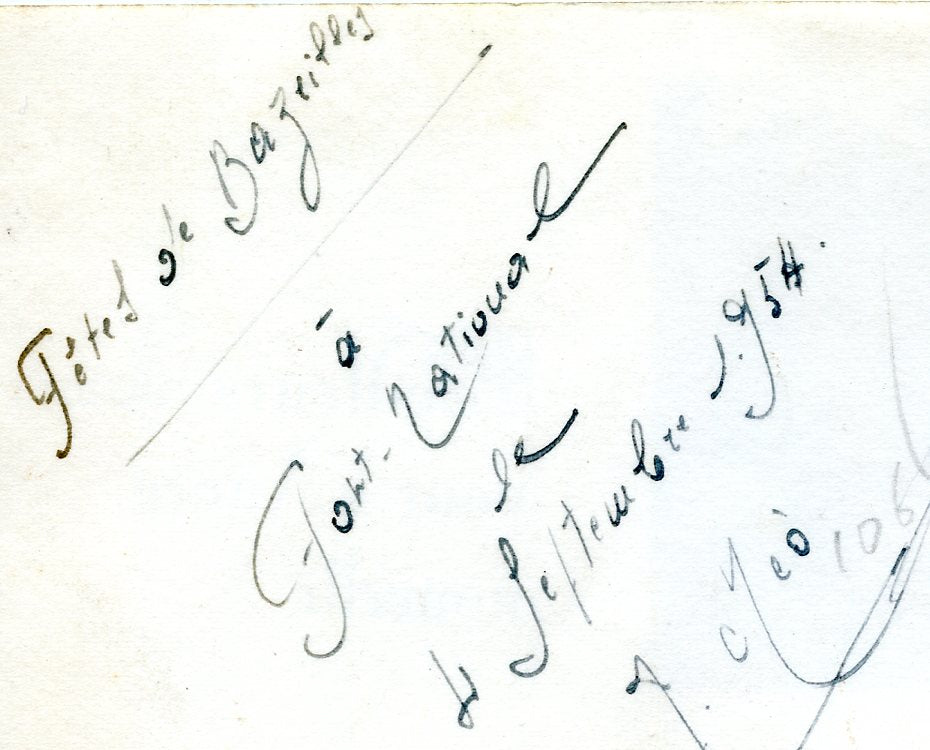 Fêtes de Bazeilles
à
Fort-National
le
4 Septembre 1.954.